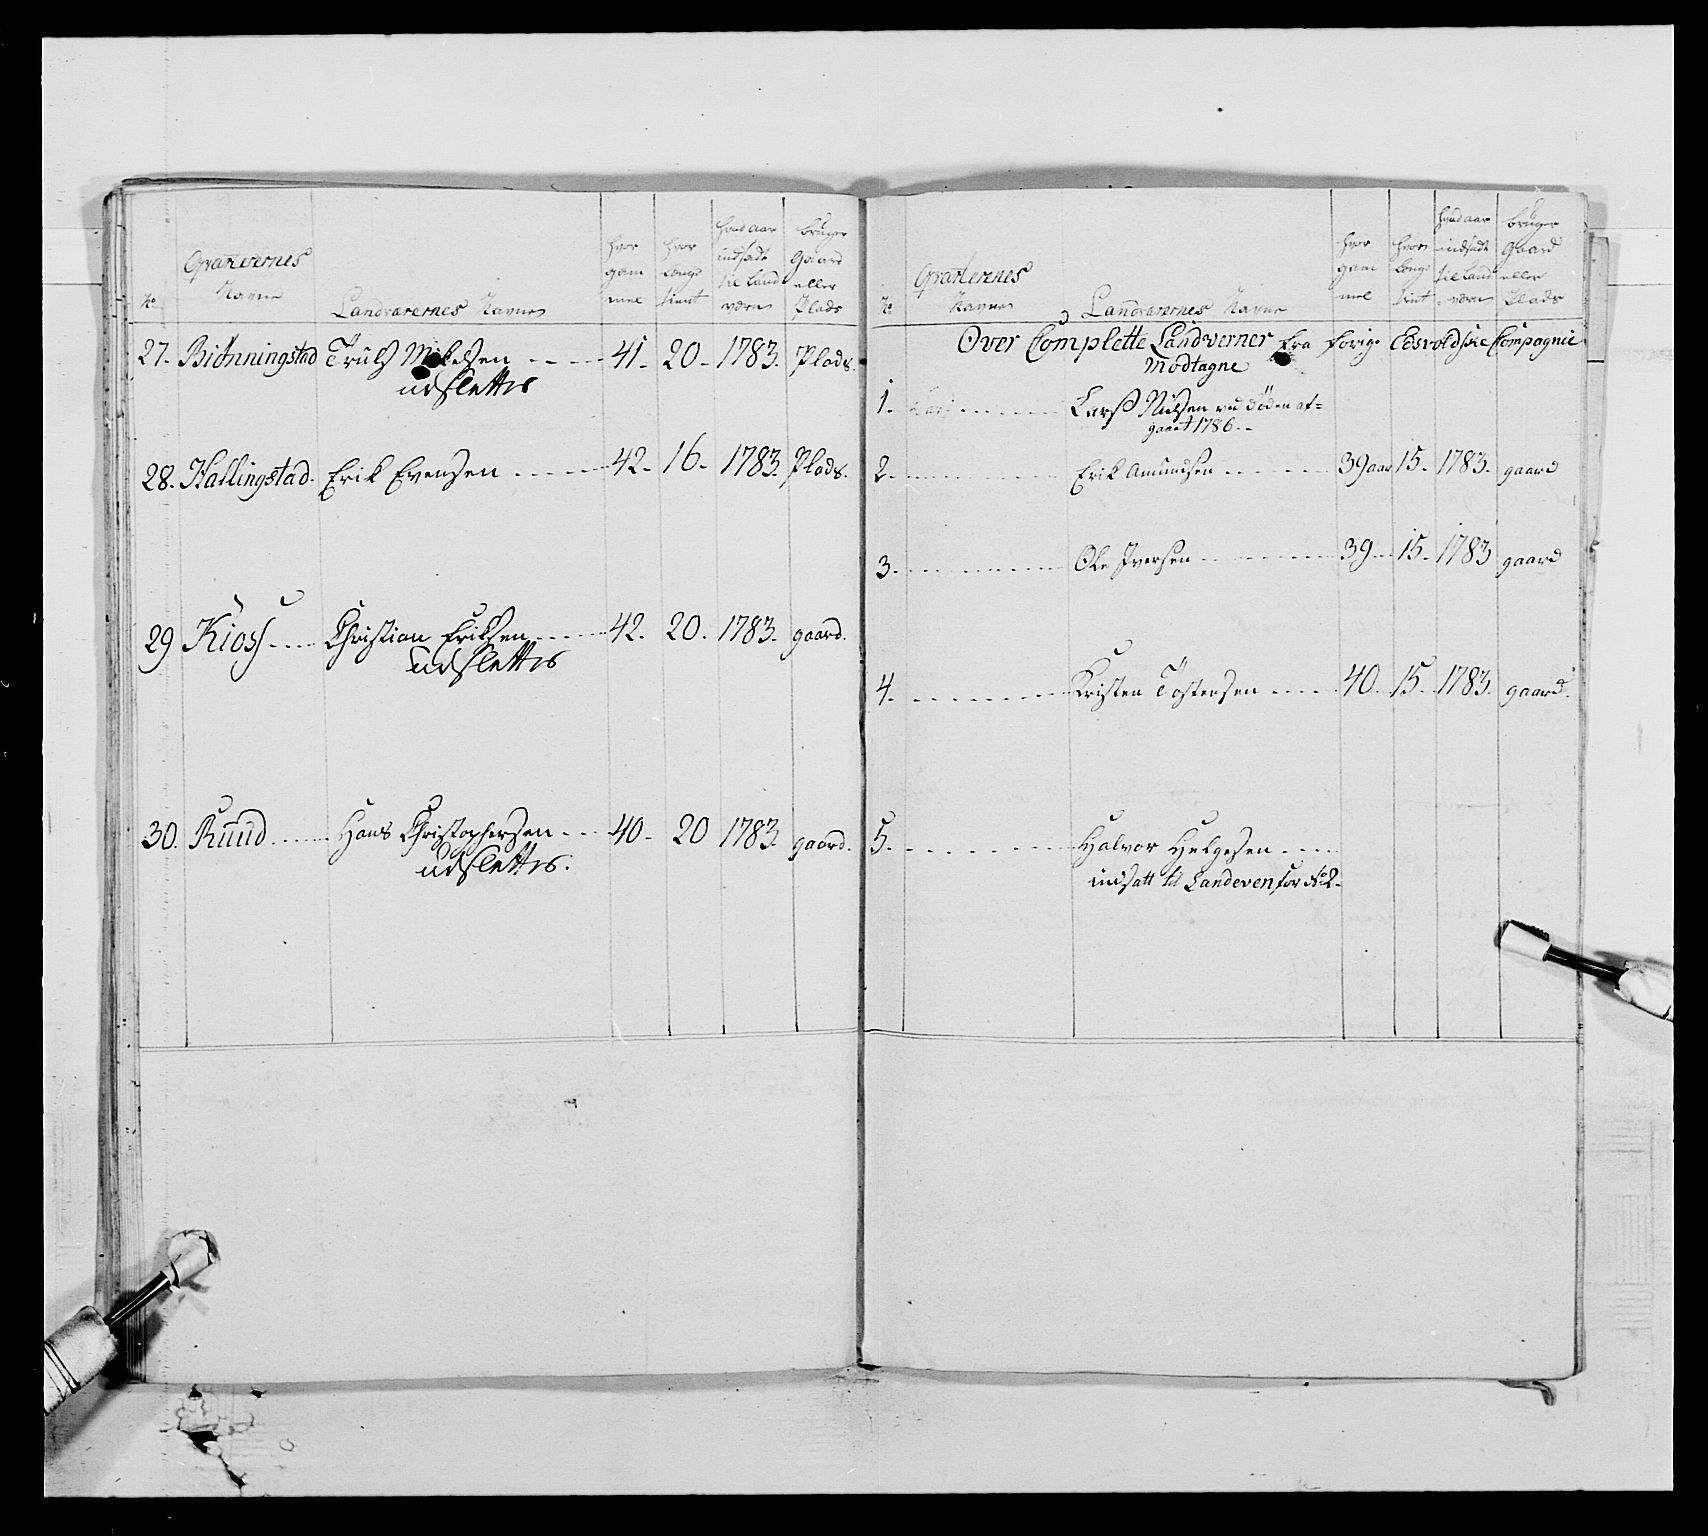 No
Qvarterernes
Navne
Landværernes Navne
hvor
gam
mel
hvor
længe
tient
hvad aar
indsadt
til Land
værn
bruger
Gaard
eller
Plads
27. Biönningstad Truls Mikelsen 41. 20. 1783. Plads.
udslettes
28. Hallingstad. Erik Evensen 42. 16. 1783. Plads.
29 Kioss Christian Eriksen 42. 20. 1783. gaard.
udslettes
30. Ruud Hans Christophersen 40. 20 1783. gaard.
udslettes.
No
Qvarterernes
Navne
Landværernes Navne
hvor
gam
mel
hvor
længe
tient
hvad aar
indsadt
til Land
værn
bruger
Gaard
eller
Plads
Over Complette Landverner fra forige Eidsvoldske Compagnie
Modtagne
1. Lars Nielsen ved döden af=
gaaet 1786.
2. Erik Amundsen 39 aar 15. 1783. gaard
3. Ole Iversen 39 15. 1783 gaard
4. Kristen Tostensen 40. 15. 1783. gaard.
5. Halvor Helgesen
indsatt til Landeven for No 2.